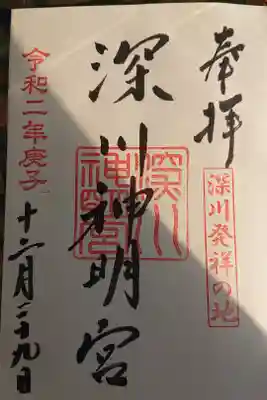 奉拝
深川発祥の地
深川神明宮
深川
神明宮
令和二年庚子
十二月二十九日